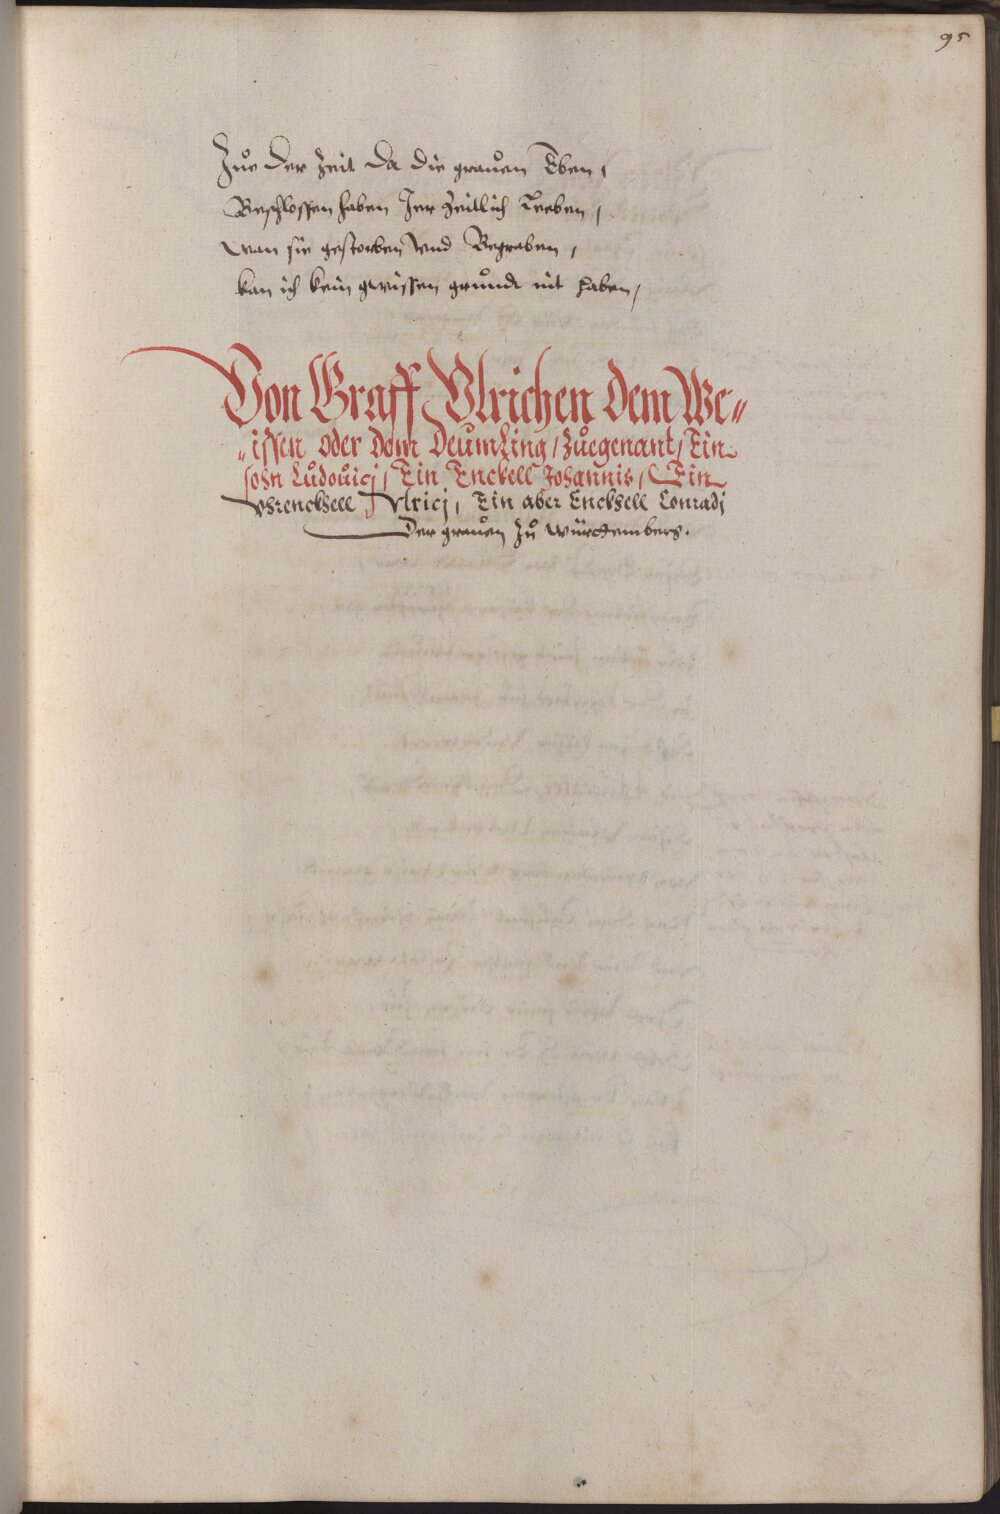 95
Zue der Zeit da die grauen Eben,
Beschlossen haben Jer Zeitlich Leeben,
Wan sie gestorben Vnd Begraben,
kan ich kein gwissen grundt nit haben,
Von Graff Vlrichen dem We„
„issen oder dem Deumling, Zuegenant, Ein
sohn Ludouicj, Ein Enckell Johannis, Ein
Vhrenckhell Vlricj, Ein aber Enckhell Conradj
Der grauen Zu Württemberg.